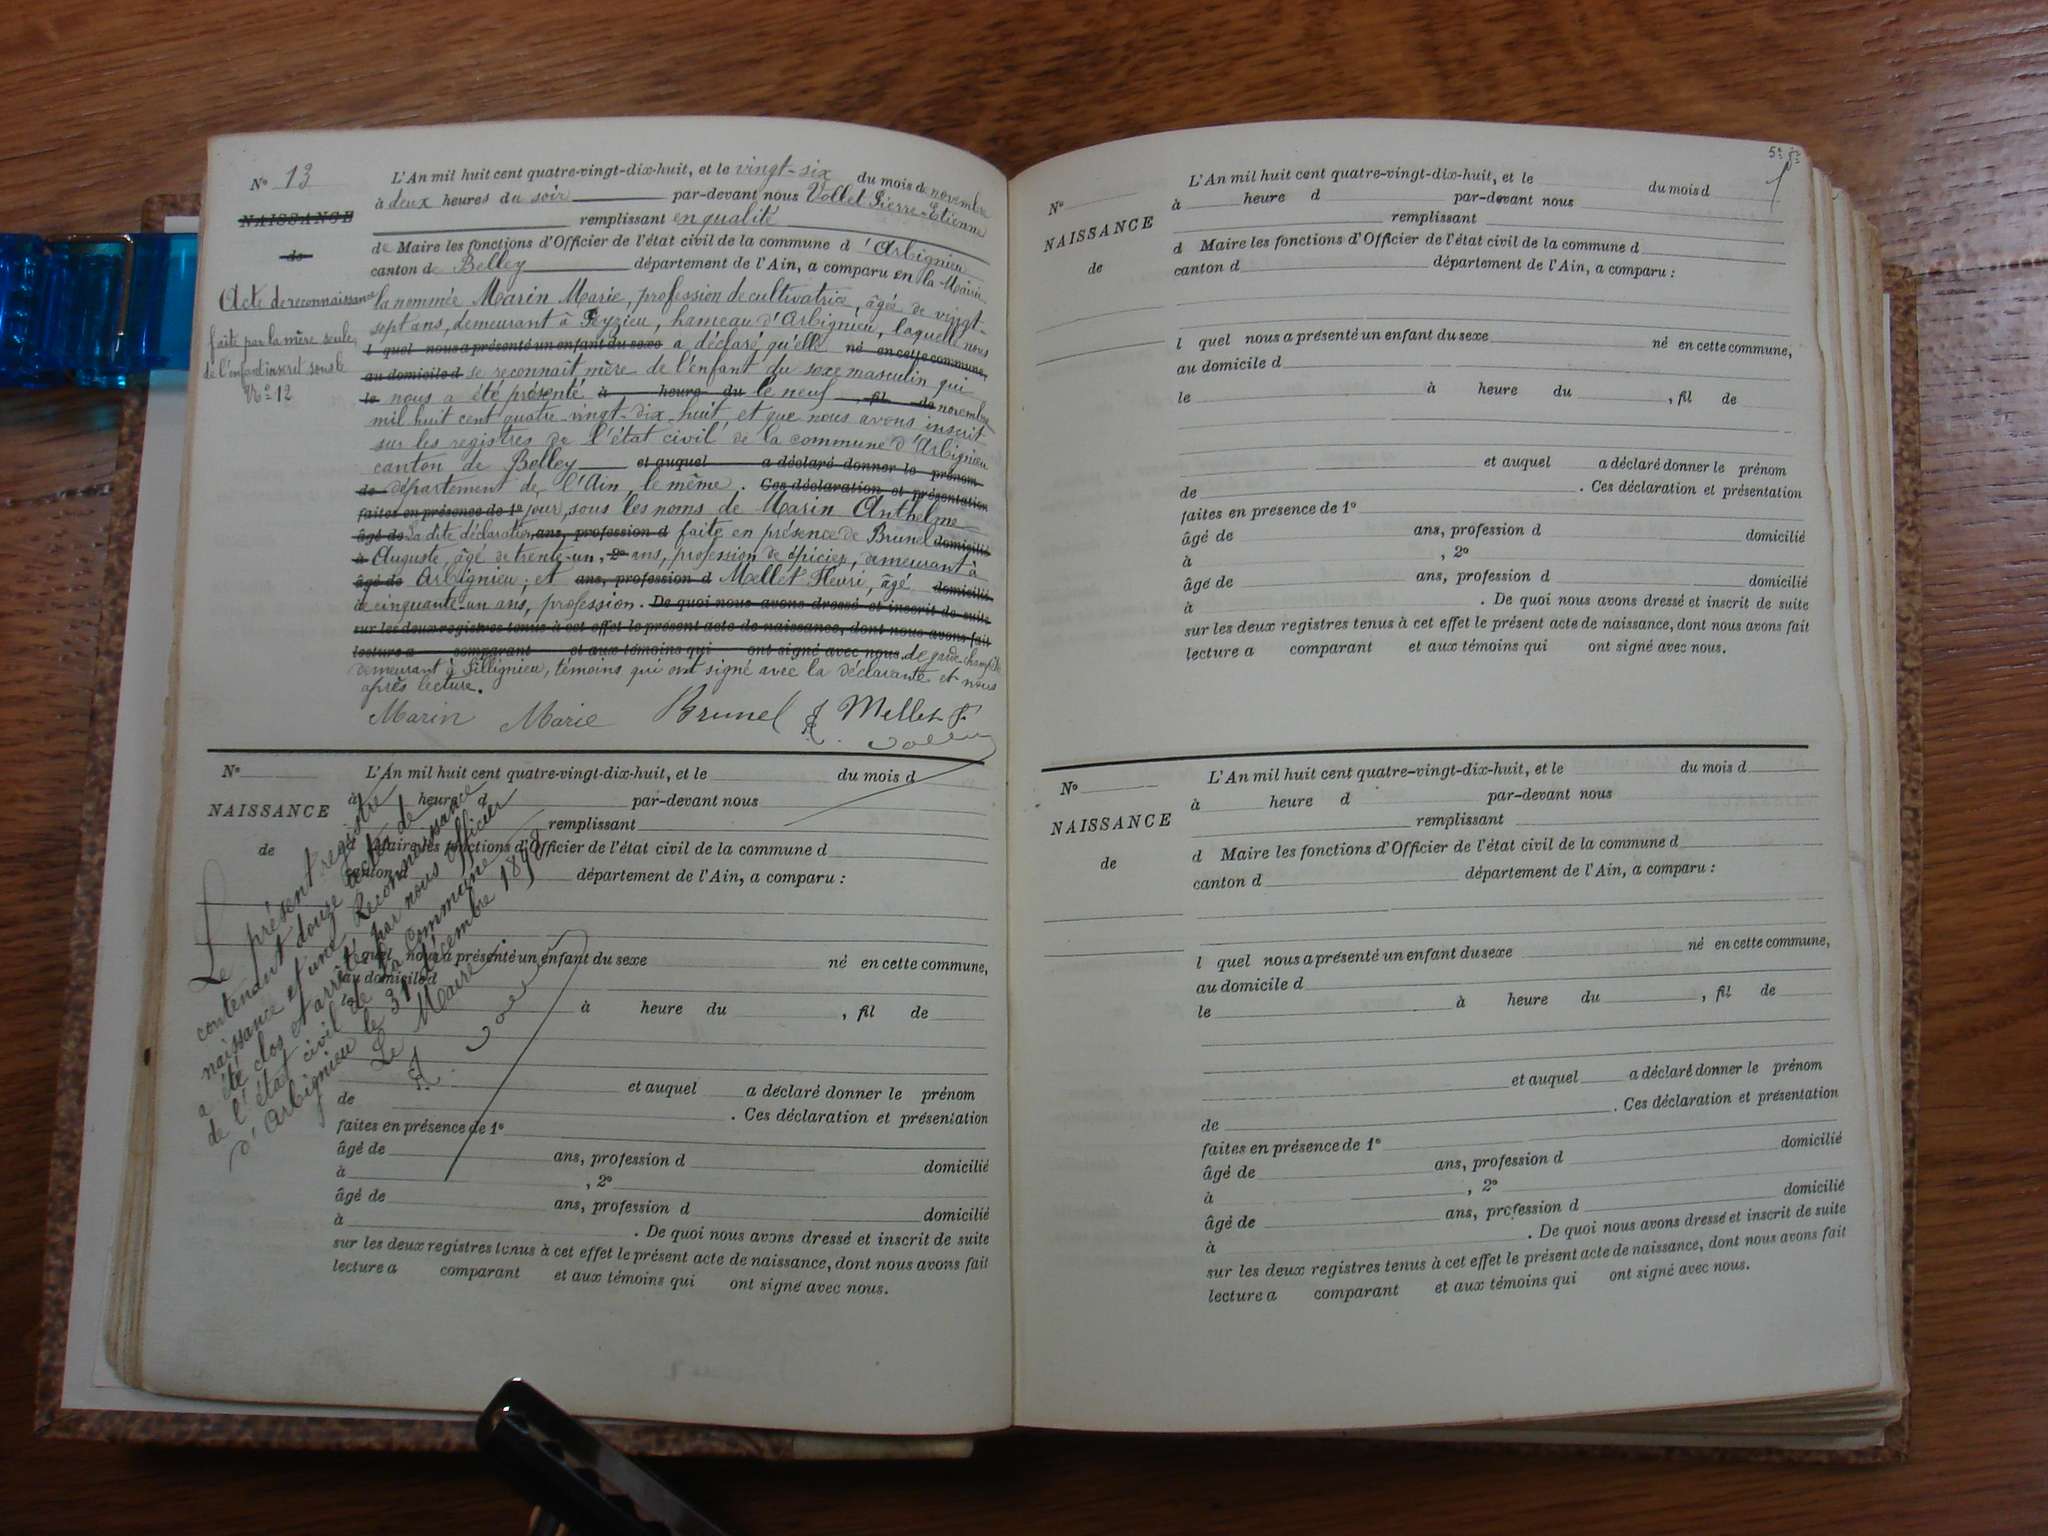 Nº 13
NAISSANCE
de
Acte de reconnaissance
faite par la mère seule,
de l'enfant inscrit sous le
Nº 12
L'An mil huit cent quatre-vingt-dix-huit, et le vingt-six du mois de novembre
à deux heures du soir par-devant nous Vollet Pierre-Etienne
remplissant en qualité
de Maire les fonctions d'Officier de l'état civil de la commune d'Arbignieu
canton de Belley département de l'Ain, a comparu en la Mairie
la nommée Marin Marie, profession de cultivatrice, âgée de vingt-
sept ans, demeurant à Peyzieu, hameau d'Arbignieu, laquelle nous
l quel nous a présenté un enfant du sexe a déclaré qu'elle né en cette commune,
au domicile d se reconnait mère de l'enfant du sexe masculin qui
le nous a été présenté à heure du le neuf , fil de novembre
mil huit cent quatre-vingt-dix-huit et que nous avons inscrit
sur les registres de l'état civil de la commune d'Arbignieu
canton de Belley et auquel a déclaré donner le prénom
de département de l'Ain, le même. Ces déclaration et présentation
faites en présence de 1º jour, sous les noms de Marin Anthelme
âgé de La dite déclaration ans, profession d faite en présence de Brunel domicilié
à Auguste, âgé de trente-un, 2º ans, profession de épicier, demeurant à
âgé de Arbignieu; et ans, profession d Mellet Fleuri, âgé domicilié
de cinquante-un ans, profession. De quoi nous avons dressé et inscrit de suite
sur les deux registres tenus à cet effet le présent acte de naissance, dont nous avons fait
lecture a comparant et aux témoins qui ont signé avec nous. de garde-champêtre
demeurant à Sillignieu, témoins qui ont signé avec la déclarante et nous
après lecture.
Marin Marie Brunel A Mellet F
Vollet
Nº
NAISSANCE
de
L'An mil huit cent quatre-vingt-dix-huit, et le du mois d
à heure d par-devant nous
remplissant
d Maire les fonctions d'Officier de l'état civil de la commune d
canton d département de l'Ain, a comparu :
l quel nous a présenté un enfant du sexe né en cette commune,
au domicile d
le à heure du , fil de
et auquel a déclaré donner le prénom
de . Ces déclaration et présentation
faites en présence de 1º
âgé de ans, profession d domicilié
à , 2º
âgé de ans, profession d domicilié
à . De quoi nous avons dressé et inscrit de suite
sur les deux registres tenus à cet effet le présent acte de naissance, dont nous avons fait
lecture a comparant et aux témoins qui ont signé avec nous.
Le présent registre
contenant douze actes de
naissance et une Reconnaissance
a été clos et arrêté par nous officier
de l'état civil de la commune
d'Arbignieu le 31 décembre 1898
Le Maire
Vollet
Nº
NAISSANCE
de
L'An mil huit cent quatre-vingt-dix-huit, et le du mois d
à heure d par-devant nous
remplissant
d Maire les fonctions d'Officier de l'état civil de la commune d
canton d département de l'Ain, a comparu :
l quel nous a présenté un enfant du sexe né en cette commune,
au domicile d
le à heure du , fil de
et auquel a déclaré donner le prénom
de . Ces déclaration et présentation
faites en presence de 1º
âgé de ans, profession d domicilié
à , 2º
âgé de ans, profession d domicilié
à . De quoi nous avons dressé et inscrit de suite
sur les deux registres tenus à cet effet le présent acte de naissance, dont nous avons fait
lecture a comparant et aux témoins qui ont signé avec nous.
Nº
NAISSANCE
de
L'An mil huit cent quatre-vingt-dix-huit, et le du mois d
à heure d par-devant nous
remplissant
d Maire les fonctions d'Officier de l'état civil de la commune d
canton d département de l'Ain, a comparu :
l quel nous a présenté un enfant du sexe né en cette commune,
au domicile d
le à heure du , fil de
et auquel a déclaré donner le prénom
de . Ces déclaration et présentation
faites en présence de 1º
âgé de ans, profession d domicilié
à , 2º
âgé de ans, profession d domicilié
à . De quoi nous avons dressé et inscrit de suite
sur les deux registres tenus à cet effet le présent acte de naissance, dont nous avons fait
lecture a comparant et aux témoins qui ont signé avec nous.